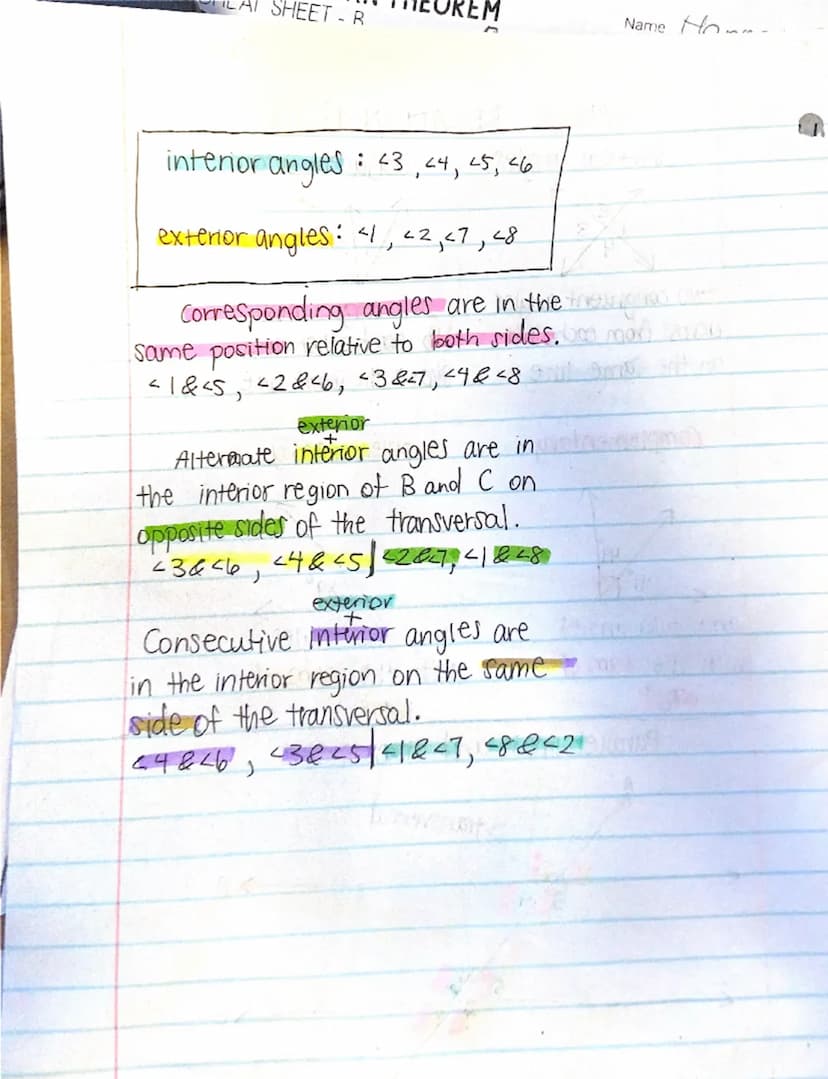 SHEET - B
THEOREM
Name
interior angles : <3, <4, <5, <6
exterior angles: <1, <2, <7, <8
Corresponding angles are in the
same position relative to both sides.
<1&<5, <2&<6, <3&<7, <4&<8
exterior
+
Alternate interior angles are in
the interior region of B and C on
opposite sides of the transversal.
<3&<6, <4&<5 | <2&7, <1&<8
exterior
+
Consecutive interior angles are
in the interior region on the same
side of the transversal.
<4&<6, <3&<5 | <1&<7, <8&<2